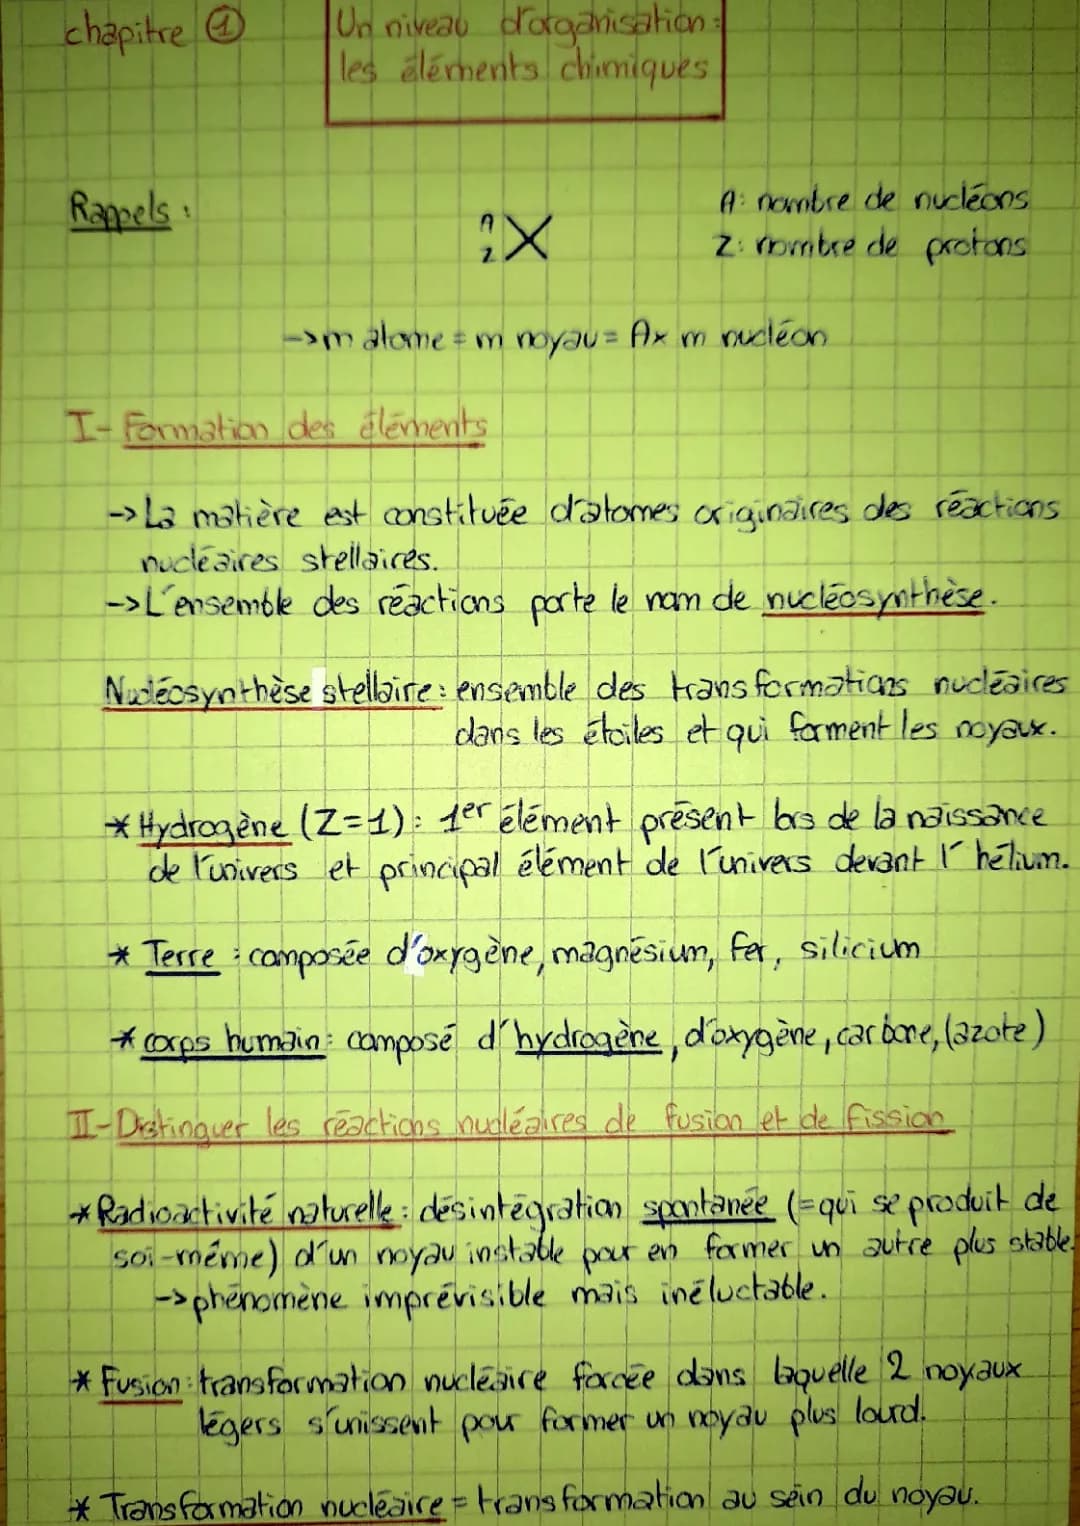 chapitre ①
Un niveau d'organisation :
les éléments chimiques
Rappels :
A
Z X
A: nombre de nucléons
Z: nombre de protons
-> m atome = m noyau = A x m nucléon
I- Formation des éléments
-> La matière est constituée d'atomes originaires des réactions
nucléaires stellaires.
-> L'ensemble des réactions porte le nom de nucléosynthèse.
Nucléosynthèse stellaire : ensemble des transformations nucléaires
dans les étoiles et qui forment les noyaux.
* Hydrogène (Z=1) : 1er élément présent lors de la naissance
de l'univers et principal élément de l'univers devant l'hélium.
* Terre : composée d'oxygène, magnésium, fer, silicium
* corps humain : composé d'hydrogène, d'oxygène, carbone, (azote)
II- Distinguer les réactions nucléaires de fusion et de fission
* Radioactivité naturelle : désintégration spontanée (= qui se produit de
soi-même) d'un noyau instable pour en former un autre plus stable.
-> phénomène imprévisible mais inéluctable.
* Fusion : transformation nucléaire forcée dans laquelle 2 noyaux
légers s'unissent pour former un noyau plus lourd.
* Transformation nucléaire = transformation au sein du noyau.